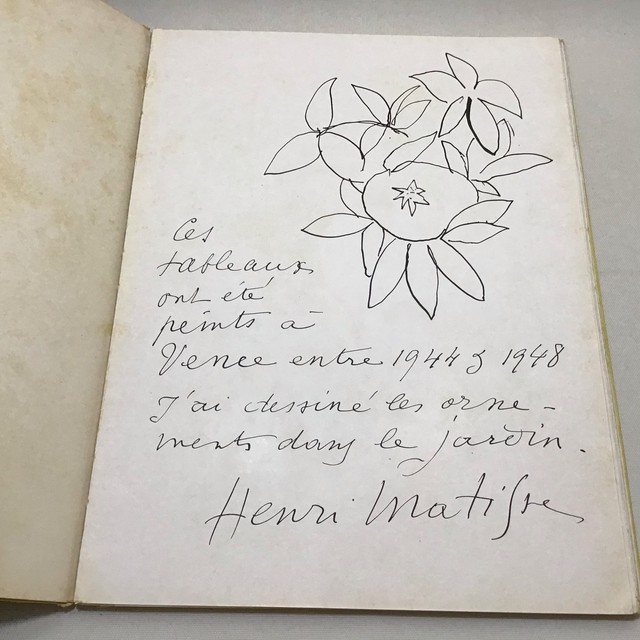 Ces
tableaux
ont été
peints à
Vence entre 1944 & 1948
J'ai dessiné les orne-
ments dans le jardin.
Henri Matisse